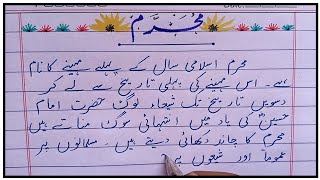 محرم
محرم اسلامی سال کے پہلے مہینے کا نام
ہے۔ اس مہینے کی پہلی تاریخ سے لے کر
دسویں تاریخ تک شیعہ لوگ حضرت امام
حسینؓ کی یاد میں انتہائی سوگ مناتے ہیں
محرم کا چاند دکھائی دیتے ہیں۔ مسلمانوں پر
عموماً اور شیعوں پر